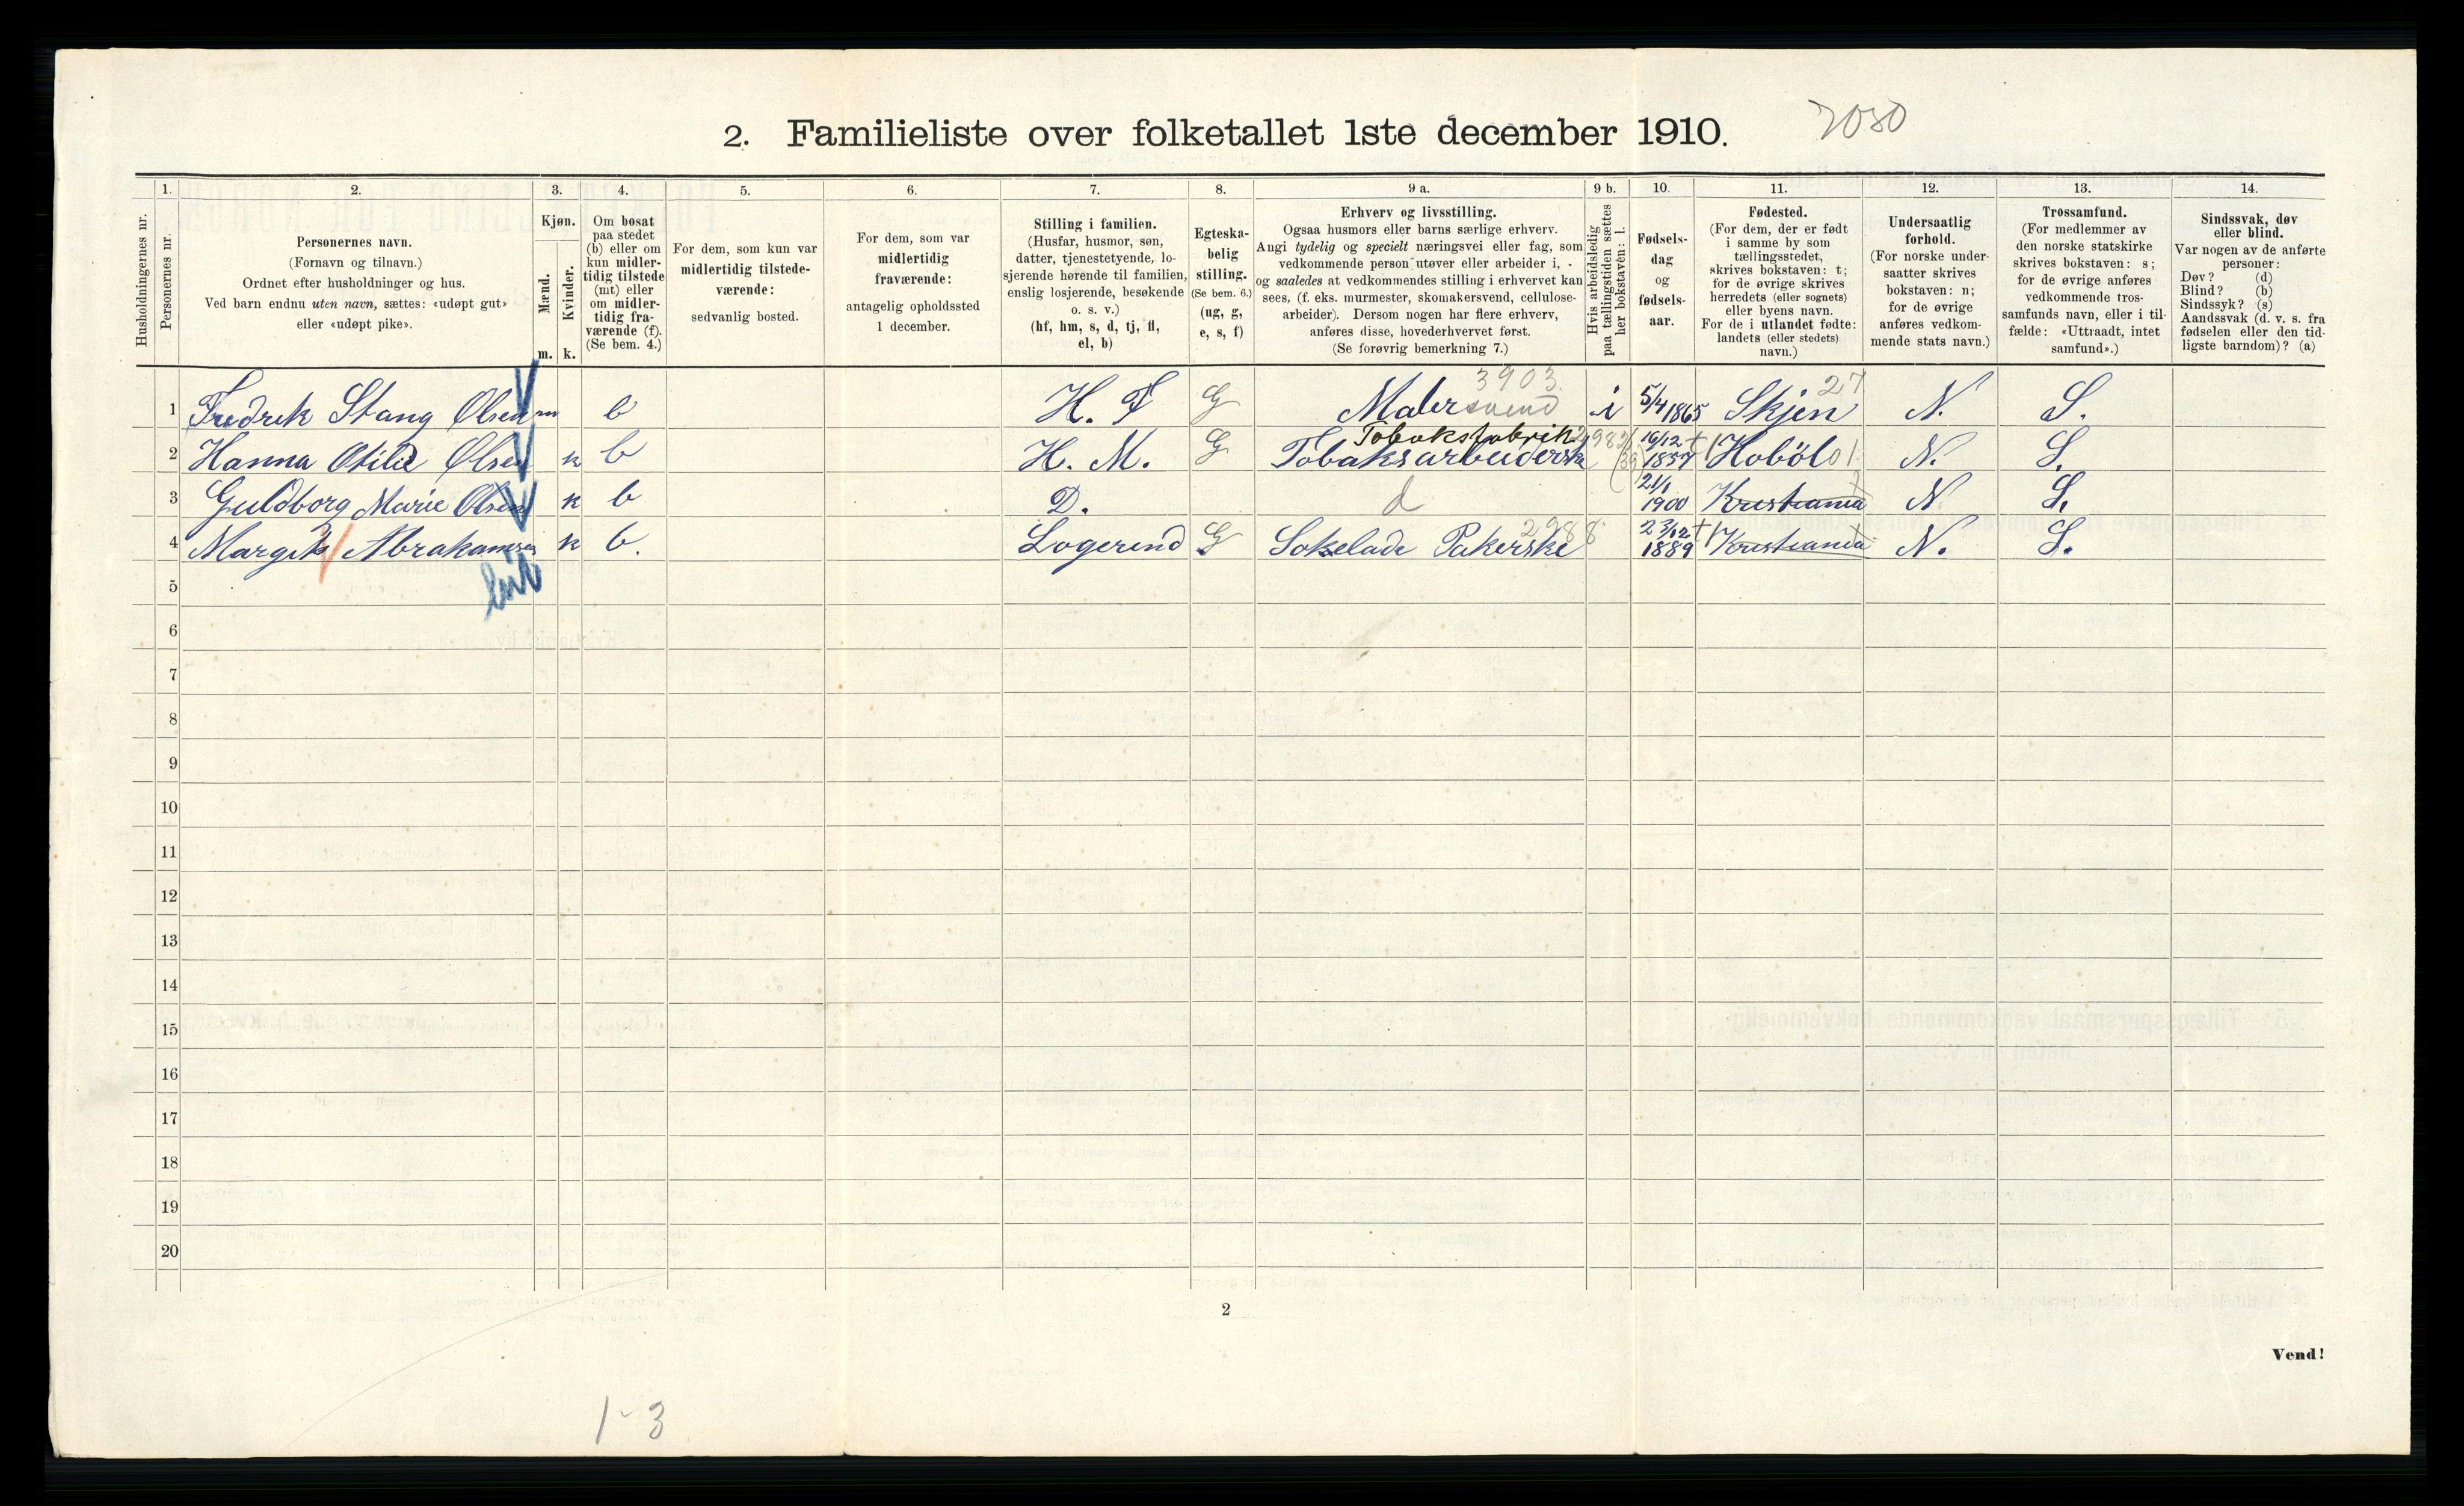 2. Familieliste over folketallet 1ste december 1910.
2080
Husholdningernes nr.
1. Personernes nr.
2. Personernes navn. (Fornavn og tilnavn.) Ordnet efter husholdninger og hus. Ved barn endnu uten navn, sættes: «udøpt gut» eller «udøpt pike».
3. Kjøn. Mænd. m. Kvinder. k.
4. Om bosat paa stedet (b) eller om kun midlertidig tilstede (mt) eller om midlertidig fraværende (f). (Se bem. 4.)
5. For dem, som kun var midlertidig tilstedeværende: sedvanlig bosted.
6. For dem, som var midlertidig fraværende: antagelig opholdssted 1 december.
7. Stilling i familien. (Husfar, husmor, søn, datter, tjenestetyende, losjerende hørende til familien, enslig losjerende, besøkende o. s. v.) (hf, hm, s, d, tj, fl, el, b)
8. Egteskabelig stilling. (Se bem. 6.) (ug, g, e, s, f)
9 a. Erhverv og livsstilling. Ogsaa husmors eller barns særlige erhverv. Angi tydelig og specielt næringsvei eller fag, som vedkommende person utøver eller arbeider i, og saaledes at vedkommendes stilling i erhvervet kan sees, (f. eks. murmester, skomakersvend, cellulosearbeider). Dersom nogen har flere erhverv, anføres disse, hovederhvervet først. (Se forøvrig bemerkning 7.)
9 b. Hvis arbeidsledig paa tællingstiden sættes her bokstaven: l.
10. Fødselsdag og fødselsaar.
11. Fødested. (For dem, der er født i samme by som tællingsstedet, skrives bokstaven: t; for de øvrige skrives herredets (eller sognets) eller byens navn. For de i utlandet fødte: landets (eller stedets) navn.)
12. Undersaatlig forhold. (For norske undersaatter skrives bokstaven: n; for de øvrige anføres vedkommende stats navn.)
13. Trossamfund. (For medlemmer av den norske statskirke skrives bokstaven: s; for de øvrige anføres vedkommende trossamfunds navn, eller i tilfælde: «Uttraadt, intet samfund».)
14. Sindssvak, døv eller blind. Var nogen av de anførte personer: Døv? (d) Blind? (b) Sindssyk? (s) Aandssvak (d. v. s. fra fødselen eller den tidligste barndom)? (a)
1 Fredrik Stang Olsen m b H. F G Malersvend 3903 i 5/4 1865 Skjen 27 N. S.
2 Hanna Otilie Olsen k b H. M. G Tobaksfabrik Tobaksarbeiderske 16/12 1857 Hoböl 01 N. S.
3 Guldborg Marie Olsen k b D. d 21/1 1900 Kristiania N S.
4 Margit Abrahamsen k b. Logerend G Sokelade Pakerske 2988 23/12 1889 Kristiania N. S.
5
6
7
8
9
10
11
12
13
14
15
16
17
18
19
20
2
Vend!
1-3